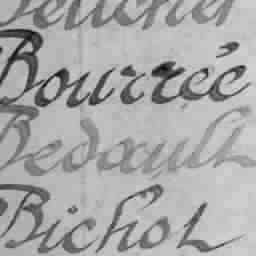 Bourrée
Bedoult
Bichot